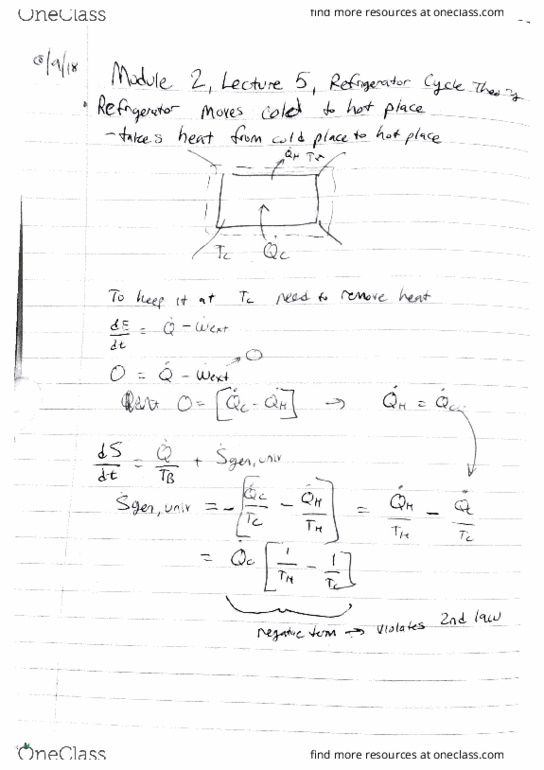 OneClass
find more resources at oneclass.com
8/9/18
Module 2, Lecture 5, Refrigerator Cycle Theory
• Refrigerator moves cold to hot place
- takes heat from cold place to hot place
Q̇H TH
TC Q̇C
To keep it at TC need to remove heat
dE/dt = Q̇ - Ẇext
0 = Q̇ - Ẇext → 0
0 = [Q̇C - Q̇H] → Q̇H = Q̇C
dS/dt = Q̇/TB + Ṡgen,univ
Ṡgen,univ = -[Q̇C/TC - Q̇H/TH] = Q̇H/TH - Q̇C/TC
= Q̇C [1/TH - 1/TC]
negative term → violates 2nd law
OneClass
find more resources at oneclass.com